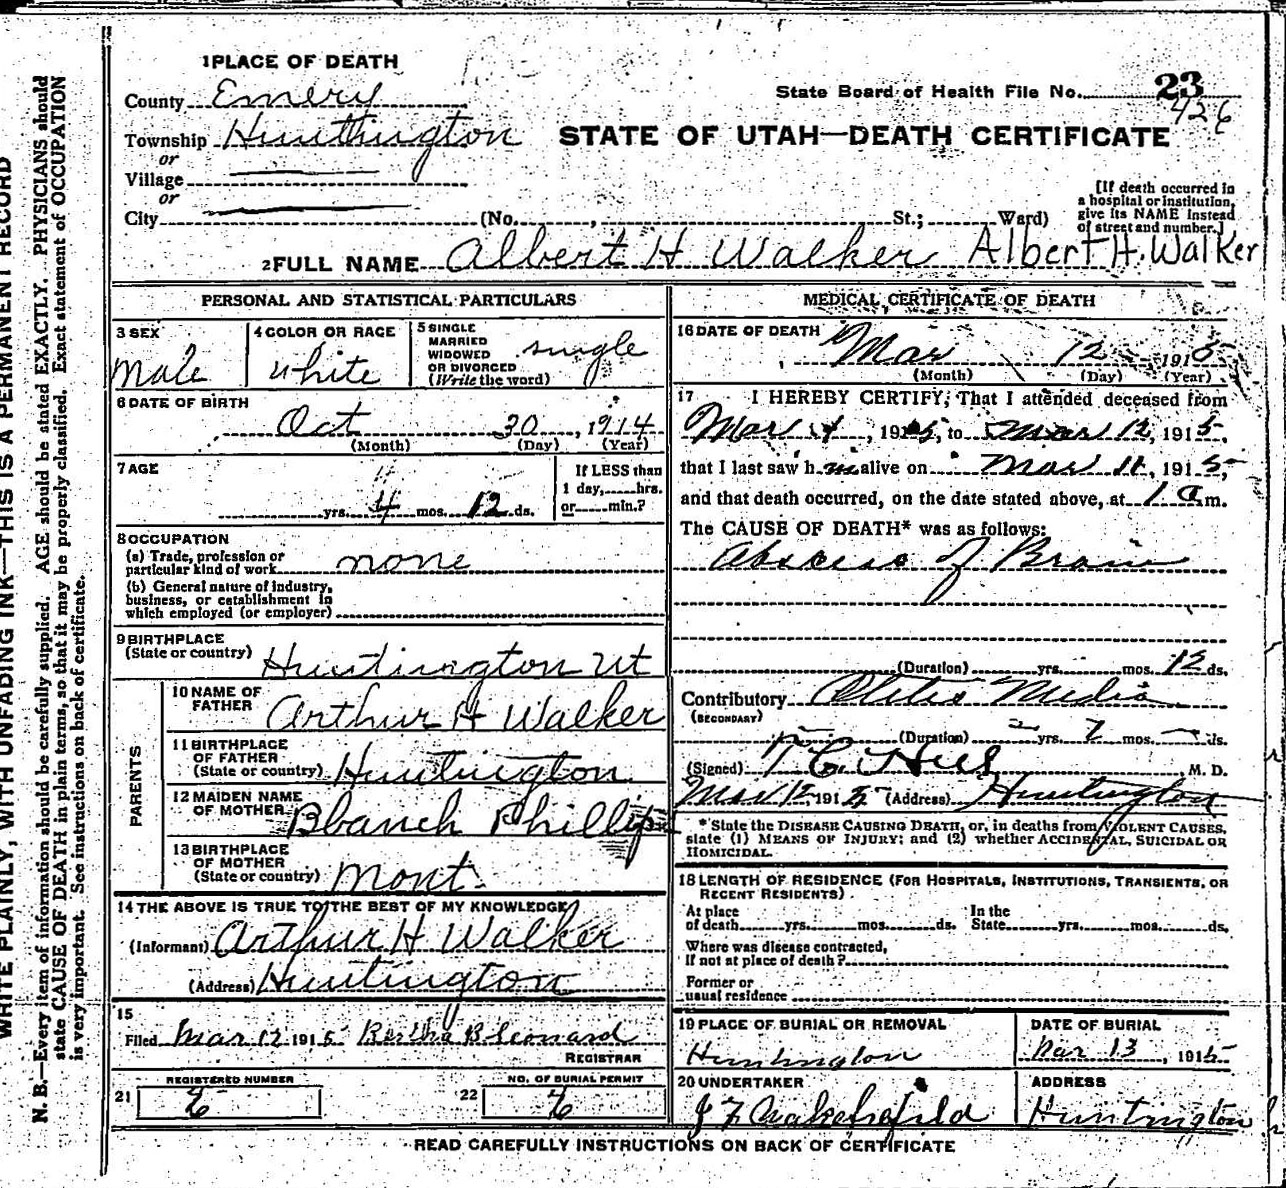 1 PLACE OF DEATH
County Emery
State Board of Health File No. 23
426
Township Hunthington
STATE OF UTAH—DEATH CERTIFICATE
or
Village
or
City (No. , St.; Ward)
[If death occurred in a hospital or institution, give its NAME instead of street and number.]
2 FULL NAME Albert H Walker Albert H. Walker
PERSONAL AND STATISTICAL PARTICULARS
3 SEX
Male
4 COLOR OR RACE
White
5 SINGLE MARRIED WIDOWED OR DIVORCED (Write the word)
single
6 DATE OF BIRTH
Oct 30, 1914
(Month) (Day) (Year)
7 AGE
yrs. 4 mos. 12 ds.
If LESS than 1 day, hrs. or min.?
8 OCCUPATION
(a) Trade, profession or particular kind of work none
(b) General nature of industry, business, or establishment in which employed (or employer)
9 BIRTHPLACE
(State or country) Huntington Ut
PARENTS
10 NAME OF FATHER Arthur H Walker
11 BIRTHPLACE OF FATHER (State or country) Huntington
12 MAIDEN NAME OF MOTHER Blanch Phillips
13 BIRTHPLACE OF MOTHER (State or country) Mont.
14 THE ABOVE IS TRUE TO THE BEST OF MY KNOWLEDGE
(Informant) Arthur H Walker
(Address) Huntington
15
Filed Mar 12 1915 Bertha B Leonard
REGISTRAR
REGISTERED NUMBER
21
NO. OF BURIAL PERMIT
22
MEDICAL CERTIFICATE OF DEATH
16 DATE OF DEATH
Mar 12, 1915
(Month) (Day) (Year)
17 I HEREBY CERTIFY, That I attended deceased from
Mar 4, 1915, to Mar 12, 1915,
that I last saw him alive on Mar 11, 1915,
and that death occurred, on the date stated above, at 1 a m.
The CAUSE OF DEATH* was as follows:
Abscess of Brain
(Duration) yrs. mos. 12 ds.
Contributory Otitis Media
(SECONDARY)
(Duration) yrs. 2 mos. ds.
(Signed) T C Hill M. D.
Mar 12 1915 (Address) Huntington
*State the DISEASE CAUSING DEATH, or, in deaths from VIOLENT CAUSES,
state (1) MEANS OF INJURY; and (2) whether ACCIDENTAL, SUICIDAL OR
HOMICIDAL.
18 LENGTH OF RESIDENCE (FOR HOSPITALS, INSTITUTIONS, TRANSIENTS, OR
RECENT RESIDENTS)
At place of death yrs. mos. ds. In the State yrs. mos. ds.
Where was disease contracted,
If not at place of death?
Former or
usual residence
19 PLACE OF BURIAL OR REMOVAL
Huntington
DATE OF BURIAL
Mar 13, 1915
20 UNDERTAKER
J F Wakefield
ADDRESS
Huntington
READ CAREFULLY INSTRUCTIONS ON BACK OF CERTIFICATE
WRITE PLAINLY, WITH UNFADING INK—THIS IS A PERMANENT RECORD
N. B.—Every item of information should be carefully supplied. AGE should be stated EXACTLY. PHYSICIANS should
state CAUSE OF DEATH in plain terms, so that it may be properly classified. Exact statement of OCCUPATION
is very important. See instructions on back of certificate.